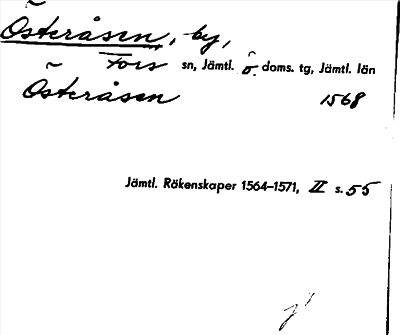 Österåsen, by,
Fors sn, Jämtl. ö. doms. tg, Jämtl. län
Österåsen 1568
Jämtl. Räkenskaper 1564–1571, II s. 55